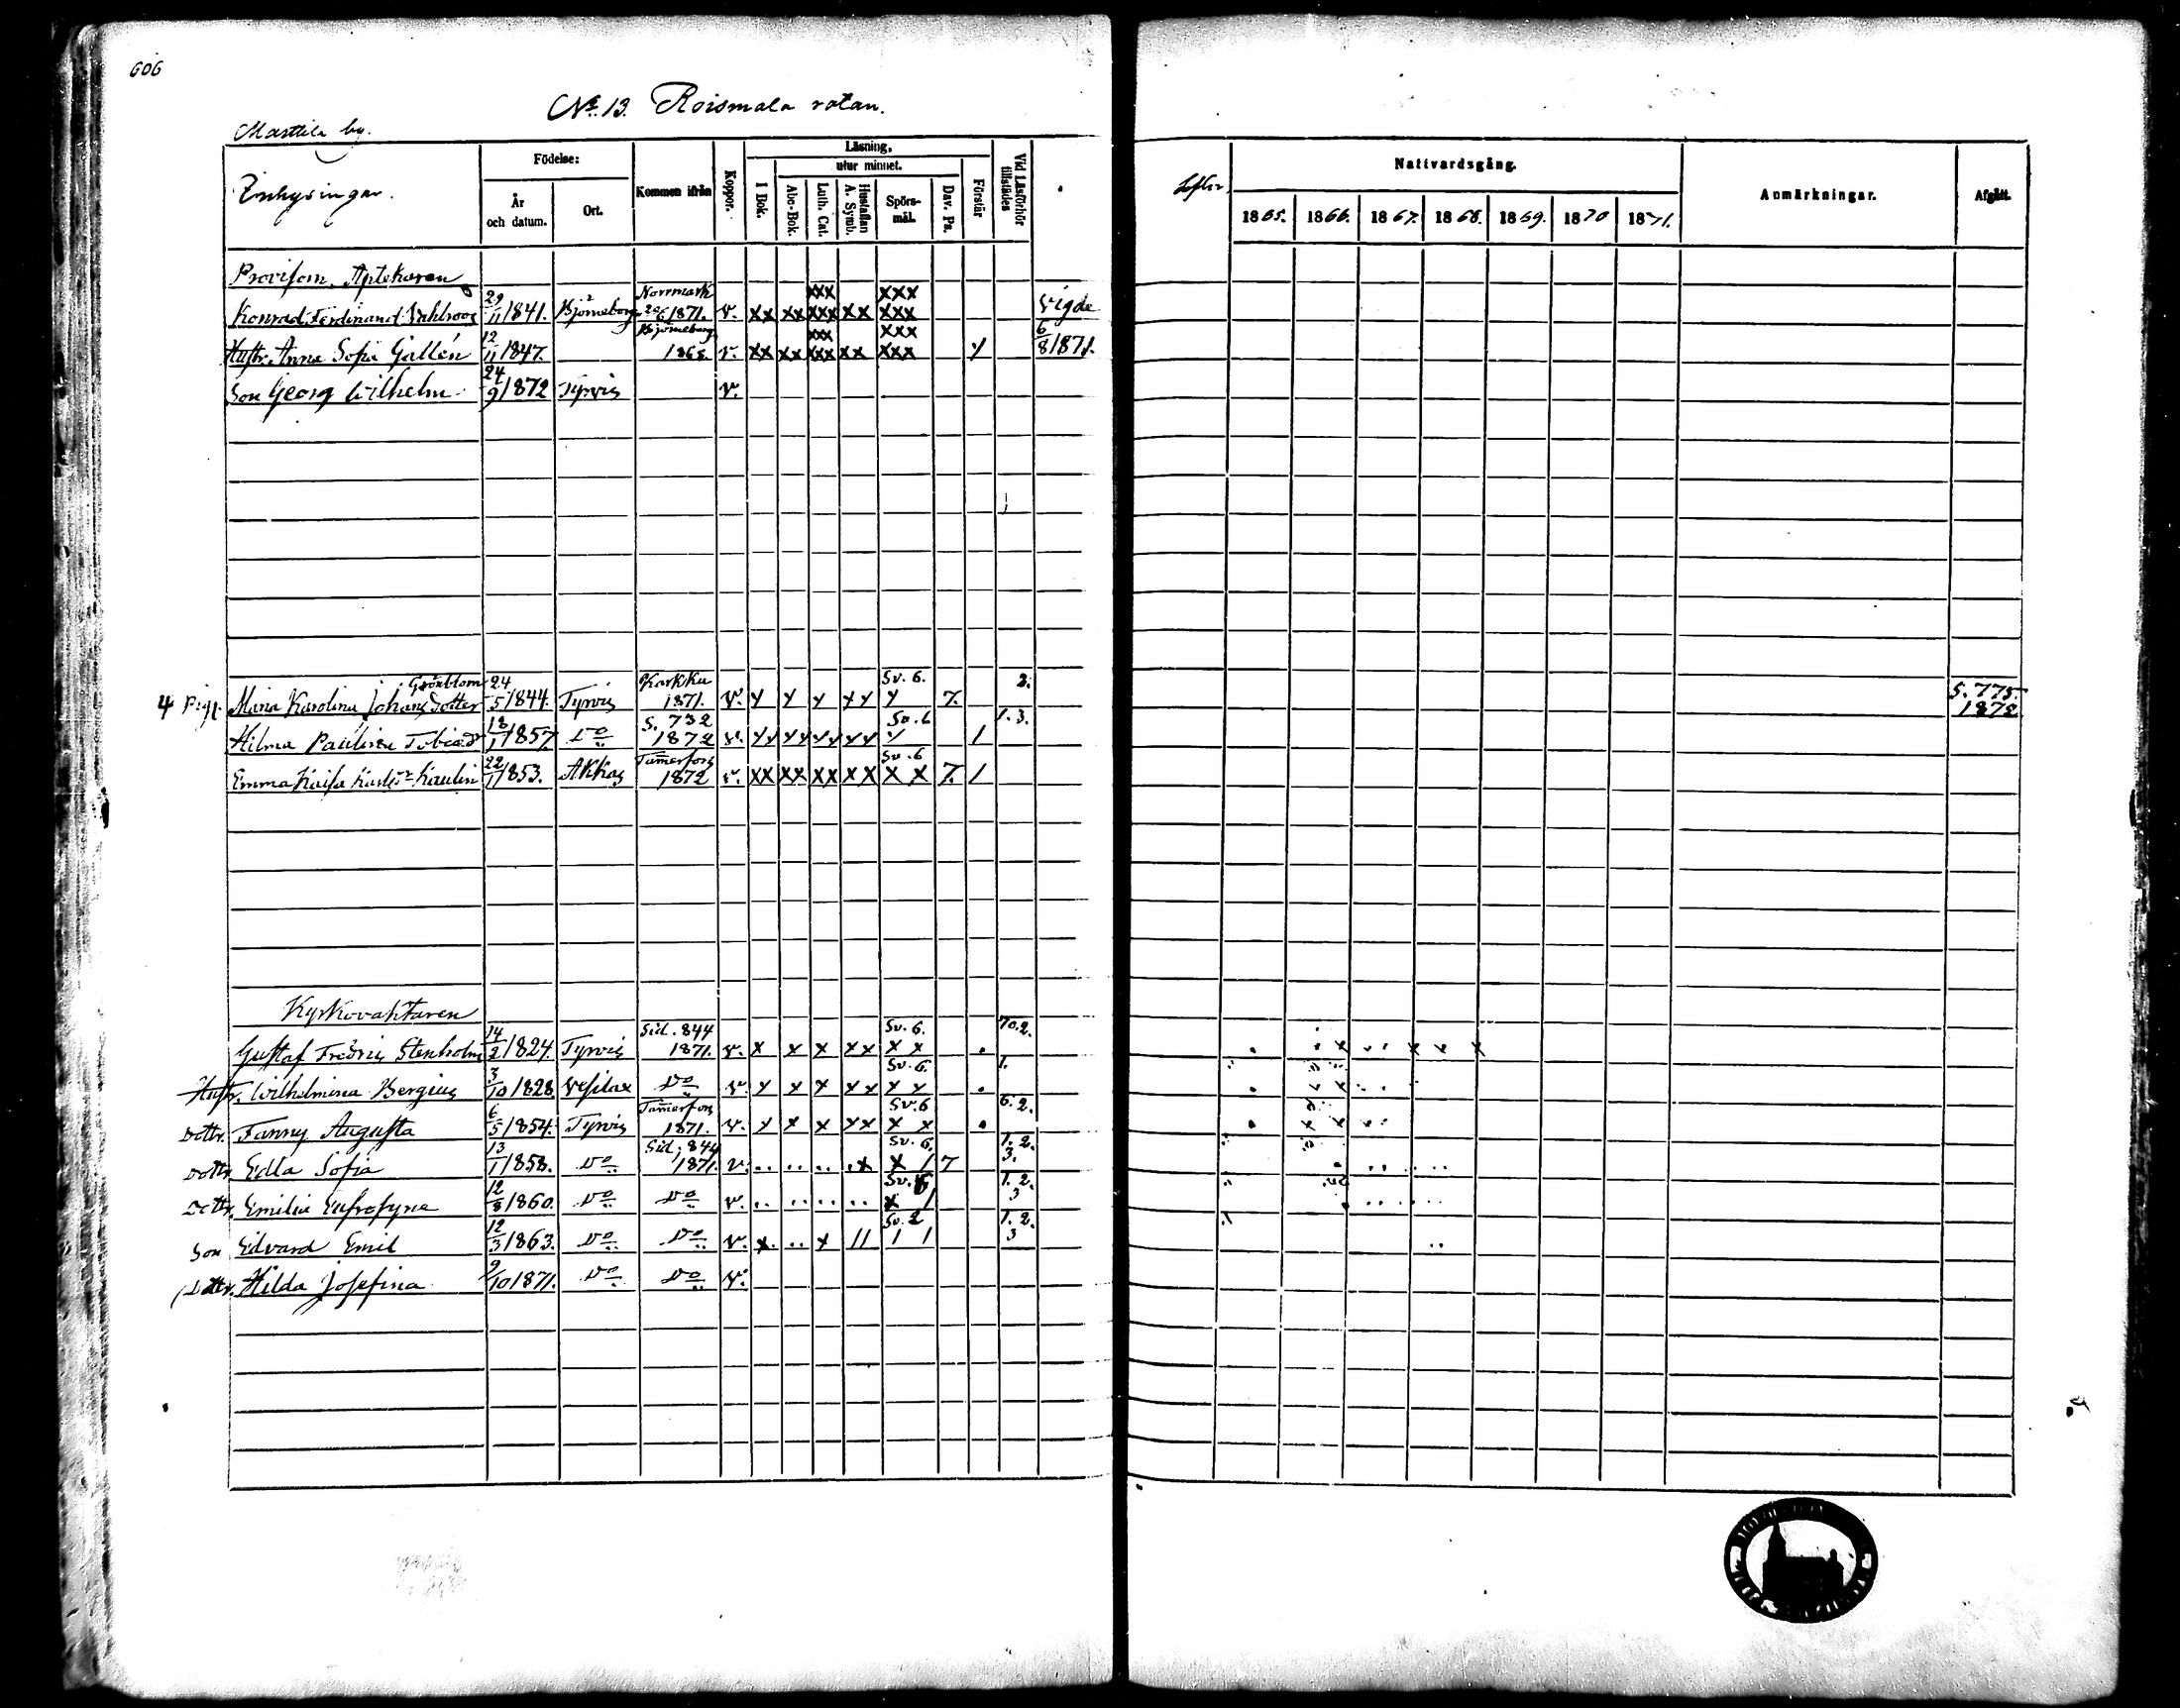 606
No 13. Roismala rotan.
Marttila by.
Inhysingar.
Födelse:
År och datum.
Ort.
Kommen ifrån
Koppor.
Läsning.
I Bok.
utur minnet.
Abc-Bok.
Luth. Cat.
Hustaflan A. Symb.
Spörs-mål.
Dav. Ps.
Förstår
Vid Läsförhör tillstädes
Nattvardsgång.
1865. 1866. 1867. 1868. 1869. 1870 1871.
Anmärkningar.
Afgått.
Provisorn, Apotekaren
Konrad Ferdinand 29/11 1841. Björneborg Norrmark 20/6 1871. v. xx xx xxx xxx xx xxx xxx Vigde
Hustr. Anna Sofia Gallén 12/11 1847. Björneborg 1868. v. xx xx xxx xxx xx xxx xxx 6/8 1871.
Son Georg Wilhelm 24/9 1872 Tyrvis v.
4 Pig. Mina Karolina Johans Dotter Grönblom 24/5 1844. Tyrvis Karkku 1871. v. Sv. 6. 7. 2. S. 775. 1872
Hilma Paulina Tobiasdr 18/1 1857. Do S. 732 1872 v. Sv. 6 1. 3.
Emma Kaisa Karlsdr Kaulin 22/1 1853. Akkas Tammerfors 1872 v. xx xx xx xx Sv. 6 x x 7. /
Kyrkovaktaren
Gustaf Fredric Stenholm 14/2 1824. Tyrvis Sid. 844 1871. v. x x x xx Sv. 6. x x 70.2.
Hustr. Wilhelmina Bergius 3/10 1828 Vesilax Do v. x x x xx Sv. 6. x x 1.
Dottr. Fanny Augusta 6/5 1854. Tyrvis Tammerfors 1871. v. x x x xx Sv. 6 x x 6. 2.
Dottr. Edla Sofia 13/1 1858. Do Sid. 844 1871. v. .. .. .. .x Sv. 6. x / 7 1. 2. 3.
Dottr. Emilia Eufrosyne 12/8 1860. Do Do v. .. .. .. .. Sv. 6 x / 1. 2. 3
Son Edvard Emil 12/3 1863. Do Do v. x. .. x // Sv. 2 / / 1. 2. 3
Dottr. Hilda Josefina 9/10 1871. Do Do v.